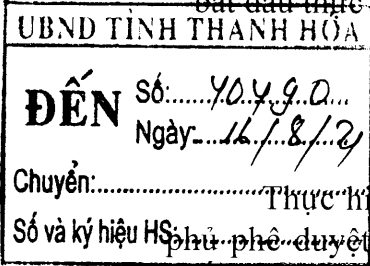 bắt đầu thực
UBND TỈNH THANH HÓA
ĐẾN
Số:.....40490...
Ngày:....16/8/21
Chuyển:................
Thực hi
Số và ký hiệu HS:................
phủ phê duyệt